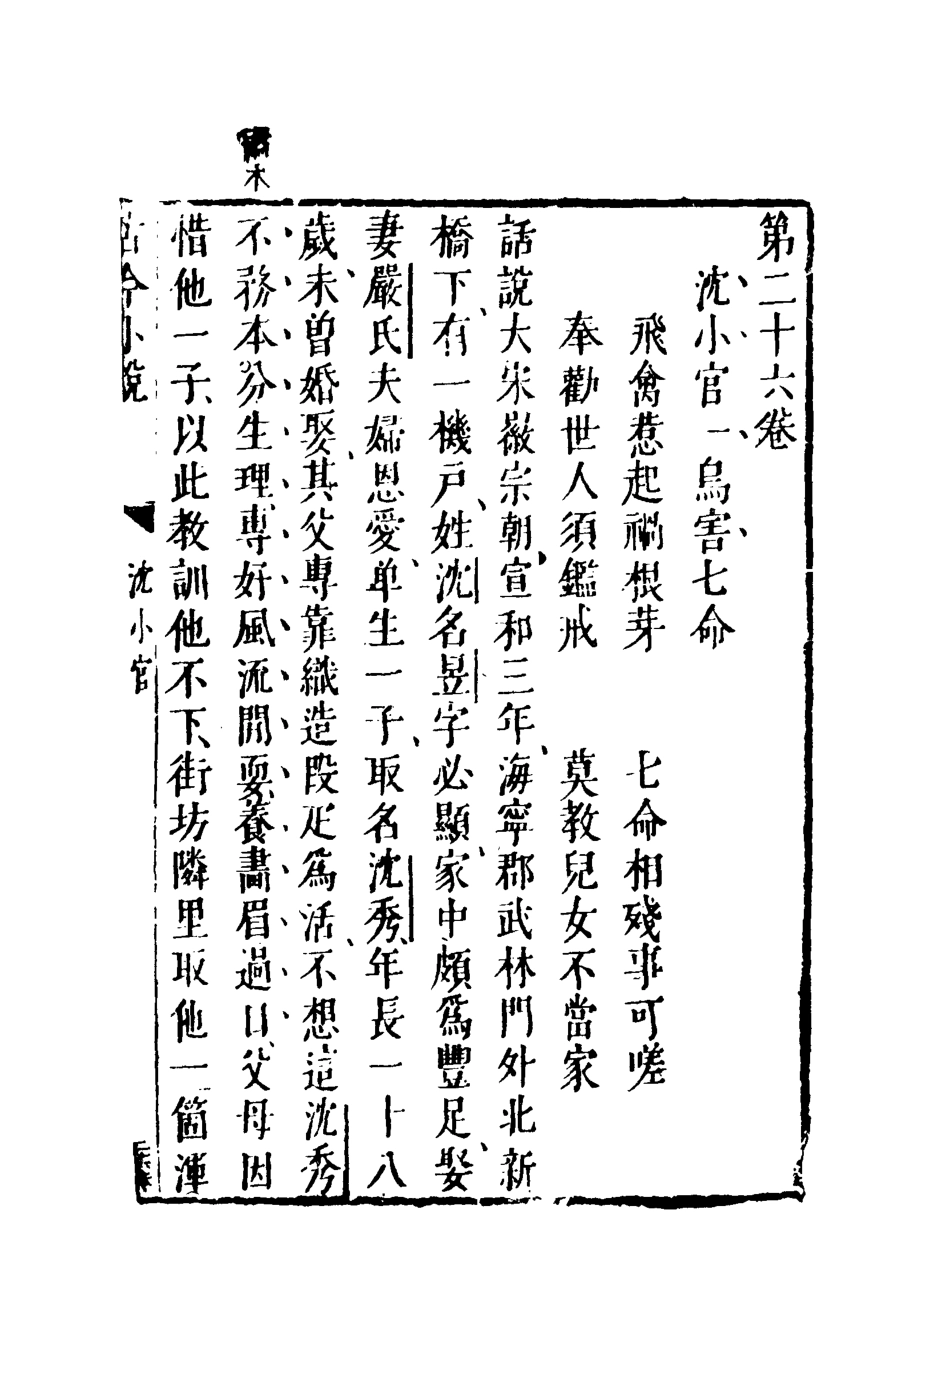 第二十六卷
沈小官一鳥害七命
飛禽惹起禍根芽　七命相殘事可嗟
奉勸世人須鑑戒　莫教兒女不當家
話說大宋徽宗朝宣和三年海寧郡武林門外北新
橋下有一機戶姓沈名昱字必顯家中頗爲豐足娶
妻嚴氏夫婦恩愛单生一子取名沈秀年長一十八
歲未曾婚娶其父專靠織造段疋爲活不想這沈秀
不務本分生理專好風流閒耍養畫眉過日父母因
惜他一子以此教訓他不下街坊隣里取他一箇渾
古今小說　沈小官